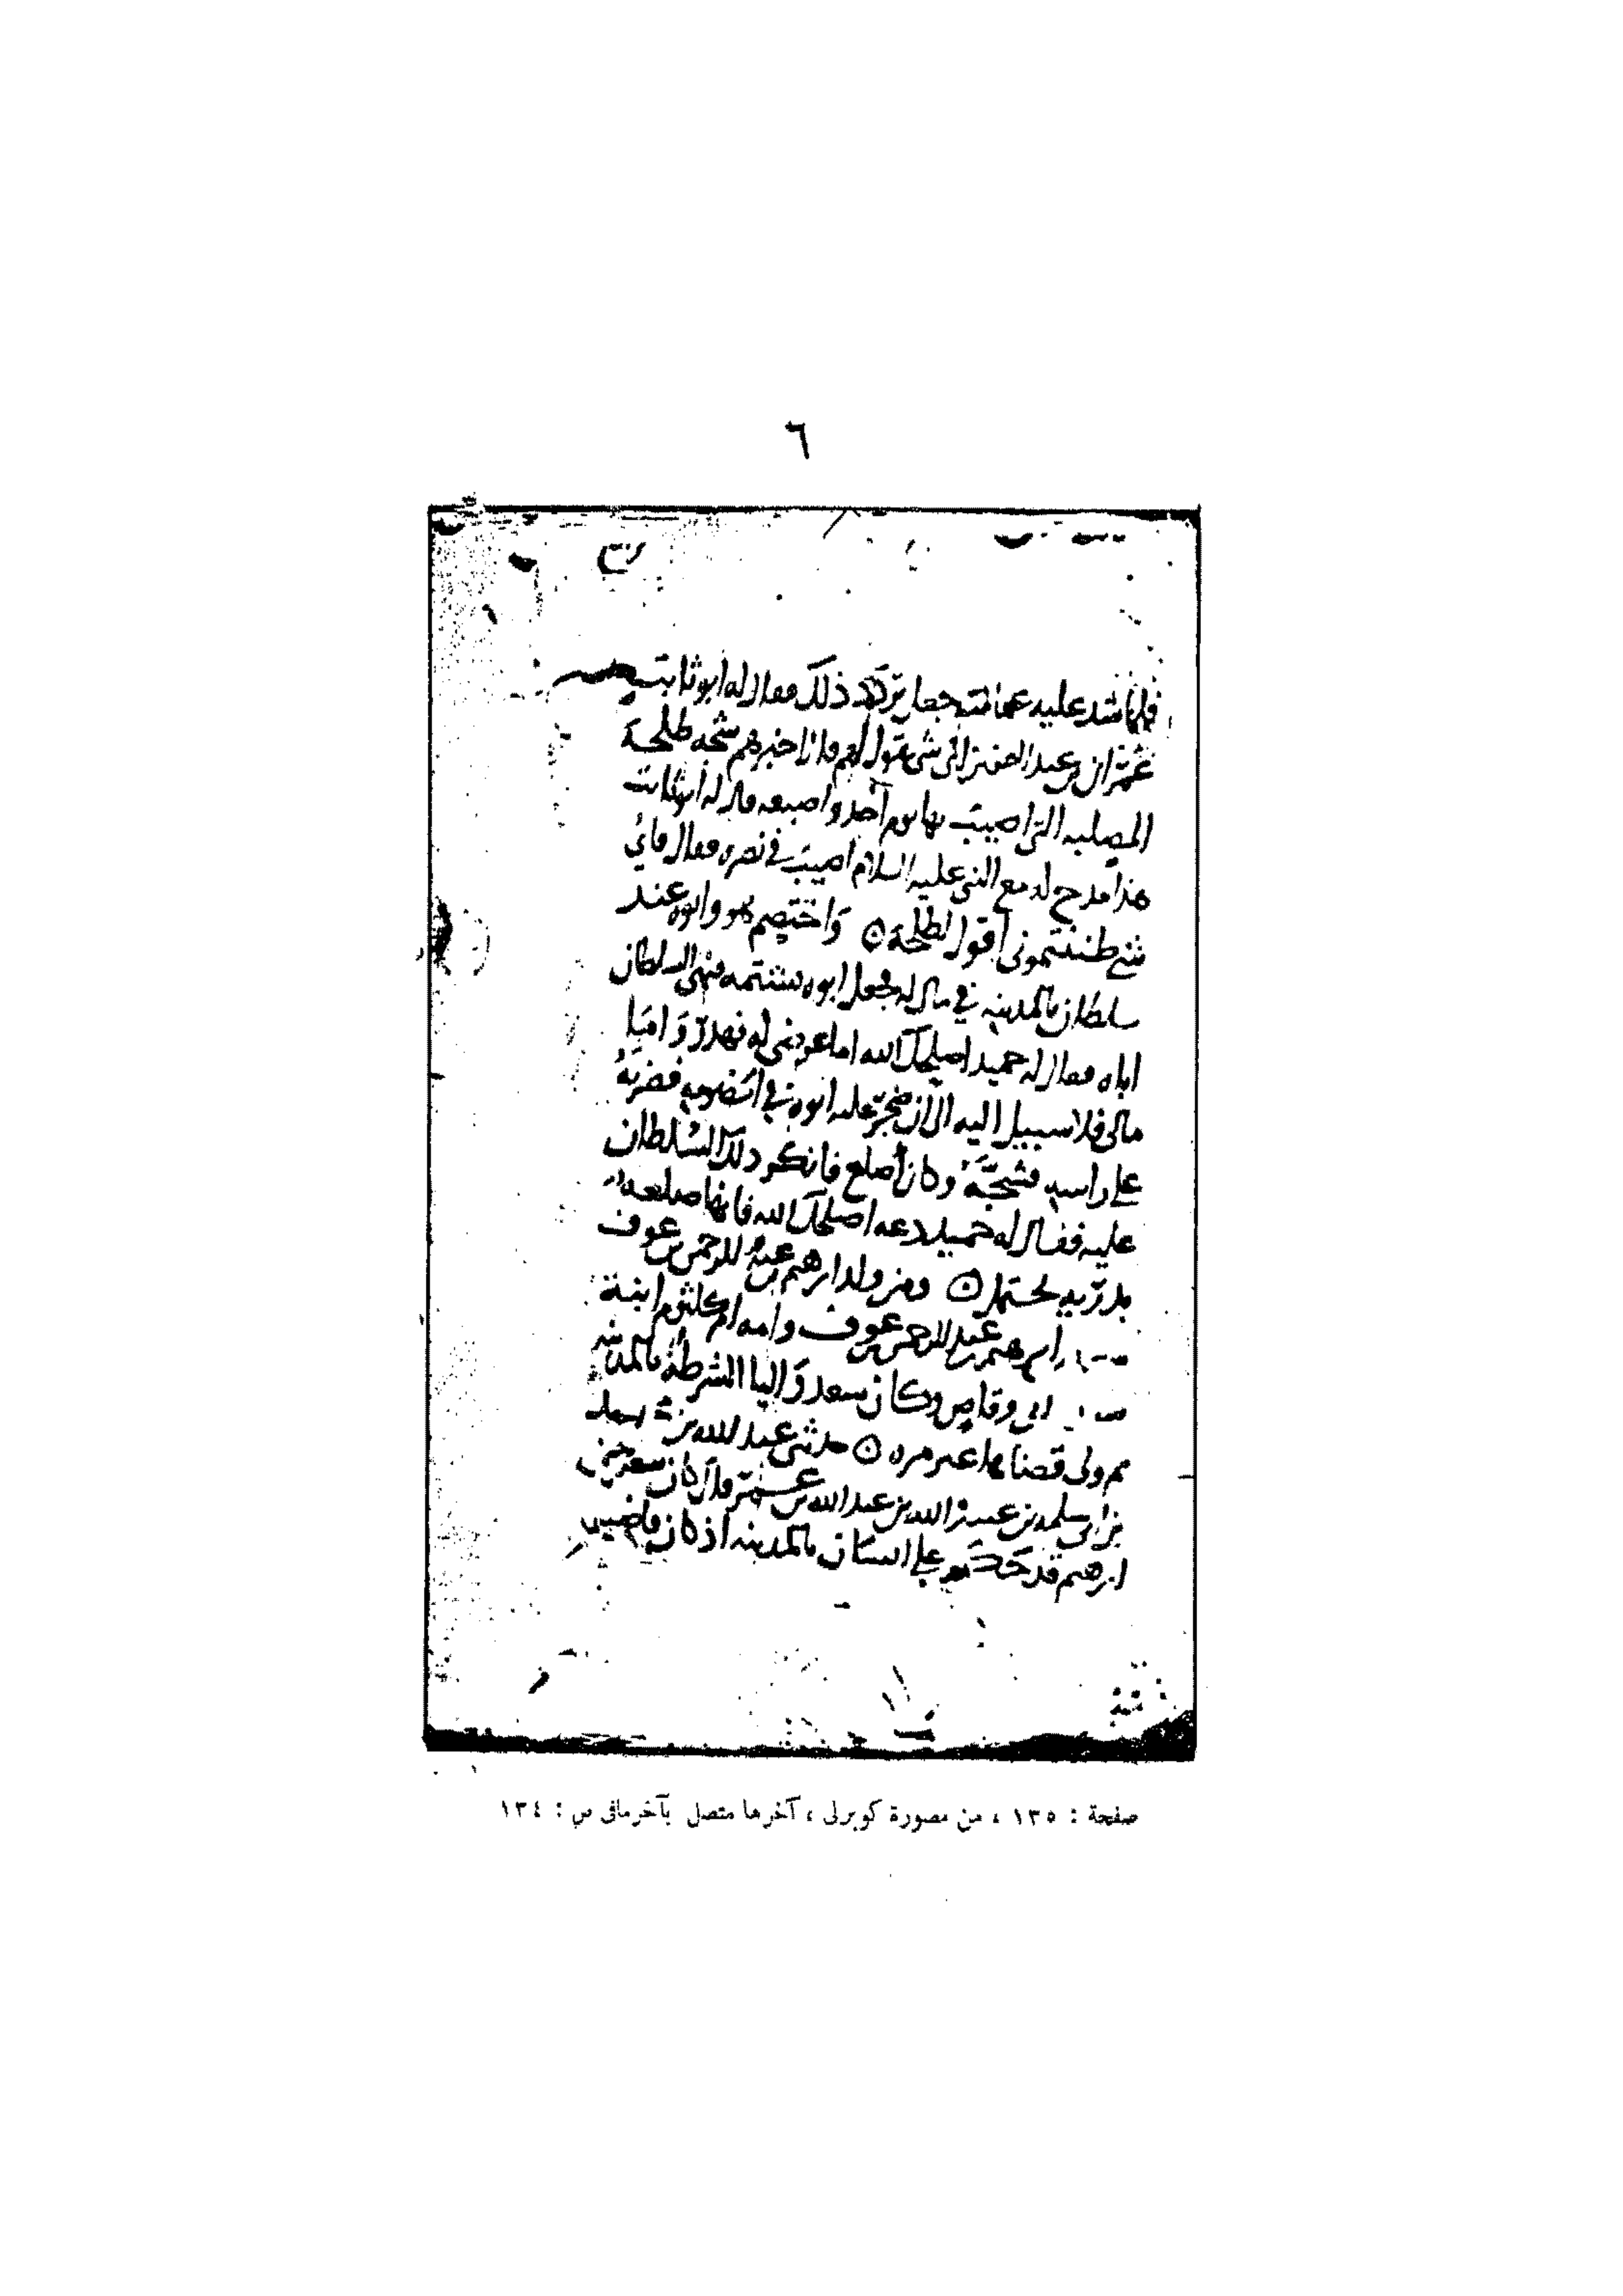 ٦
فلما شد عليه عمامته جعل يردد ذلك فقال له ابو ثابت
عمران بن عبد العزيز اى شى تقول لهم قال اخبرهم شجه طلحة
المصلبه التى اصيب بها يوم احد واصبعه قال له ابو ثابت
هذا مدح له مع النبى عليه السلام اصيب فى نصره فقال فاى
شى ظننتمونى اقول لطلحة ۞ واختصم هو وابوه عند
سلطان بالمدينه فى مال له فجعل ابوه يشتمه فنهى السلطان
اباه فقال له حميد اصلحك الله اما عرضى له فهدر واما
مالى فلا سبيل اليه الى ان ضجر عليه ابوه فضربه
على راسه فشجه وكان اصلع فانكر ذلك السلطان
عليه فقال له حميد دعه اصلحك الله فانها صلعه
۞ ومن ولد ابرهيم بن عبد الرحمن بن عوف
ابرهيم بن عبد الرحمن بن عوف وامه ام كلثوم ابنة
ابى وقاص وكان سعد واليا الشرطة بالمدينه
ثم ولى قضاها غير مره ۞ حدثنى عبد الله بن
بن ابى سلمه بن عبيد الله بن عبد الله بن عمر قال كان سعد بن
ابرهيم قد على اسنان بالمدينه اذ كان قاضيا
صفحة : ١٣٥ ، من مصورة كوبرلى ، آخرها متصل بآخر مافى ص : ١٣٤